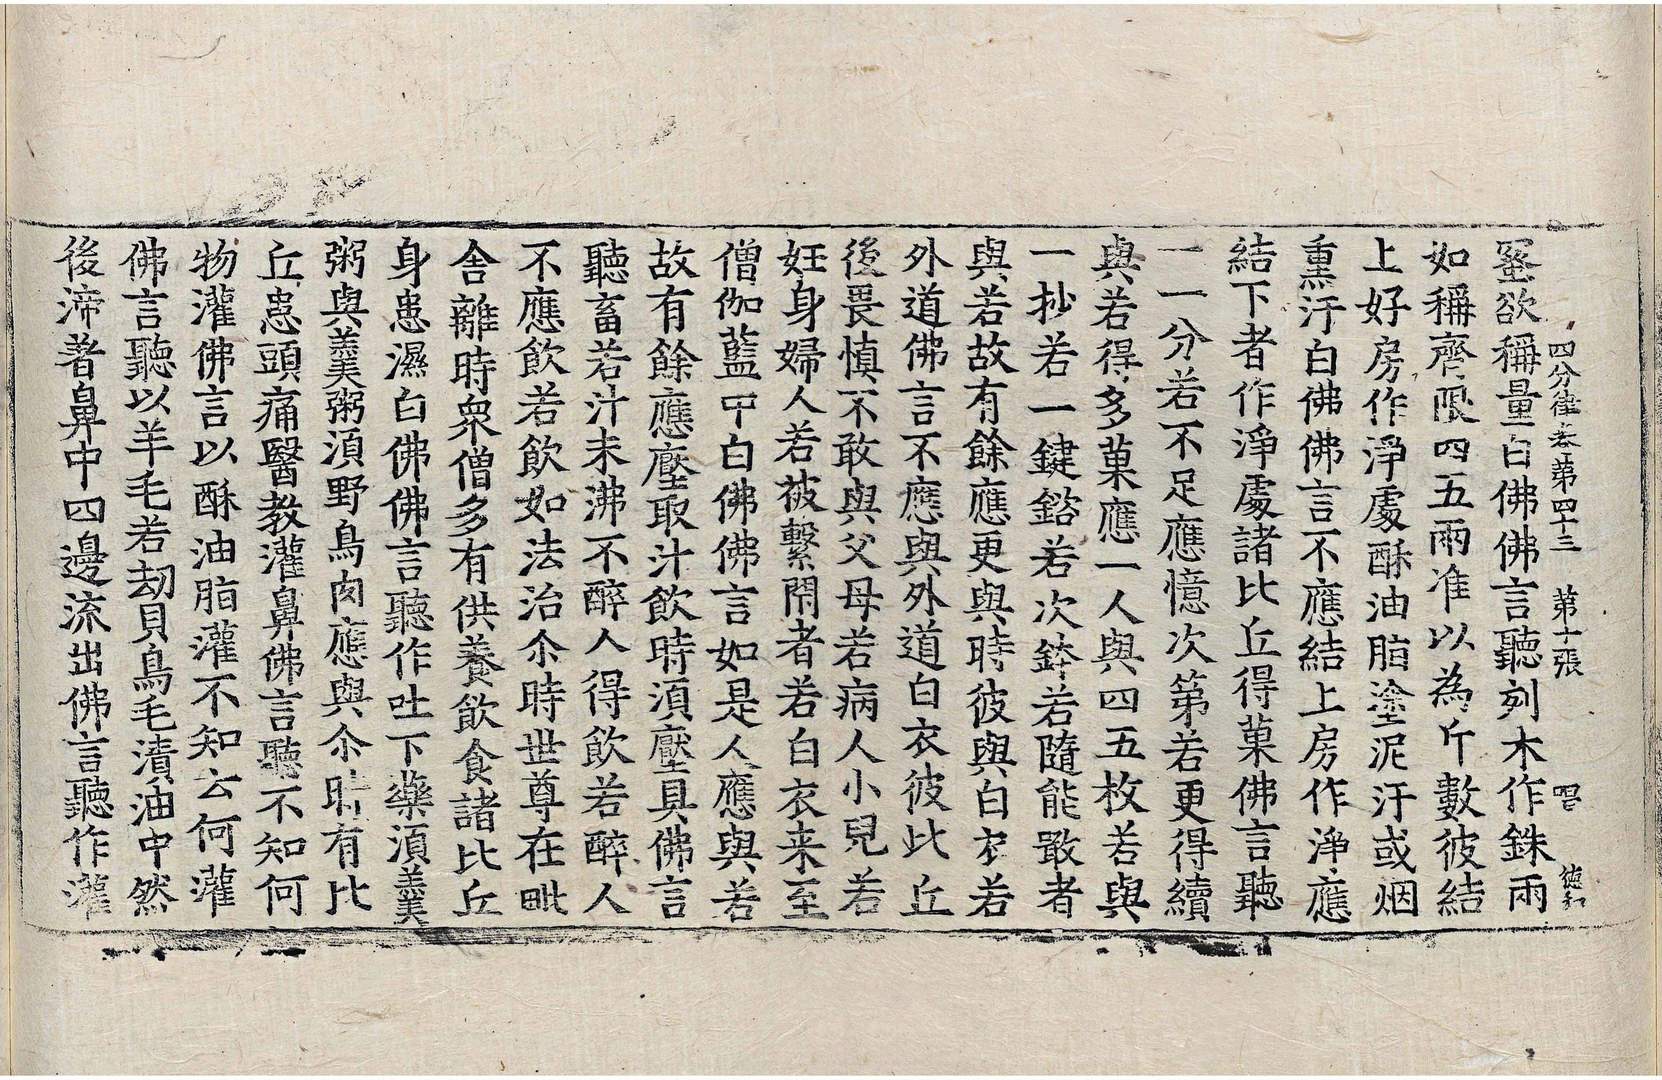 四分律卷第四十三　第十張　唱　德和
蜜欲稱量白佛佛言聽列木作銖兩
如稱齊限四五兩准以為斤數彼結
上好房作淨處酥油脂塗泥汙或烟
熏汙白佛佛言不應結上房作淨應
結下者作淨處諸比丘得菓佛言聽
一一分若不足應憶次第若更得續
與若得多菓應一人與四五枚若與
一抄若一鍵鎔若次鉢若隨能噉者
與若故有餘應更與時彼與白衣若
外道佛言不應與外道白衣彼比丘
後畏慎不敢與父母若病人小兒若
妊身婦人若被繫閉者若白衣来至
僧伽藍中白佛佛言如是人應與若
故有餘應壓取汁飲時湏壓具佛言
聽畜若汁未沸不醉人得飲若醉人
不應飲若飲如法治尒時世尊在毗
舍離時衆僧多有供養飲食諸比丘
身患濕白佛佛言聽作吐下藥湏羹
粥與羹粥湏野鳥肉應與尒時有比
丘患頭痛醫教灌鼻佛言聽不知何
物灌佛言以酥油脂灌不知云何灌
佛言聽以羊毛若劫貝鳥毛漬油中然
後渧著鼻中四邊流出佛言聽作灌